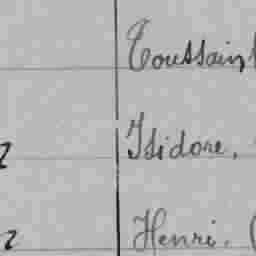 Toussaint
Isidore,
Henri, (